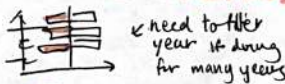 need to filter
year if doing
for many years